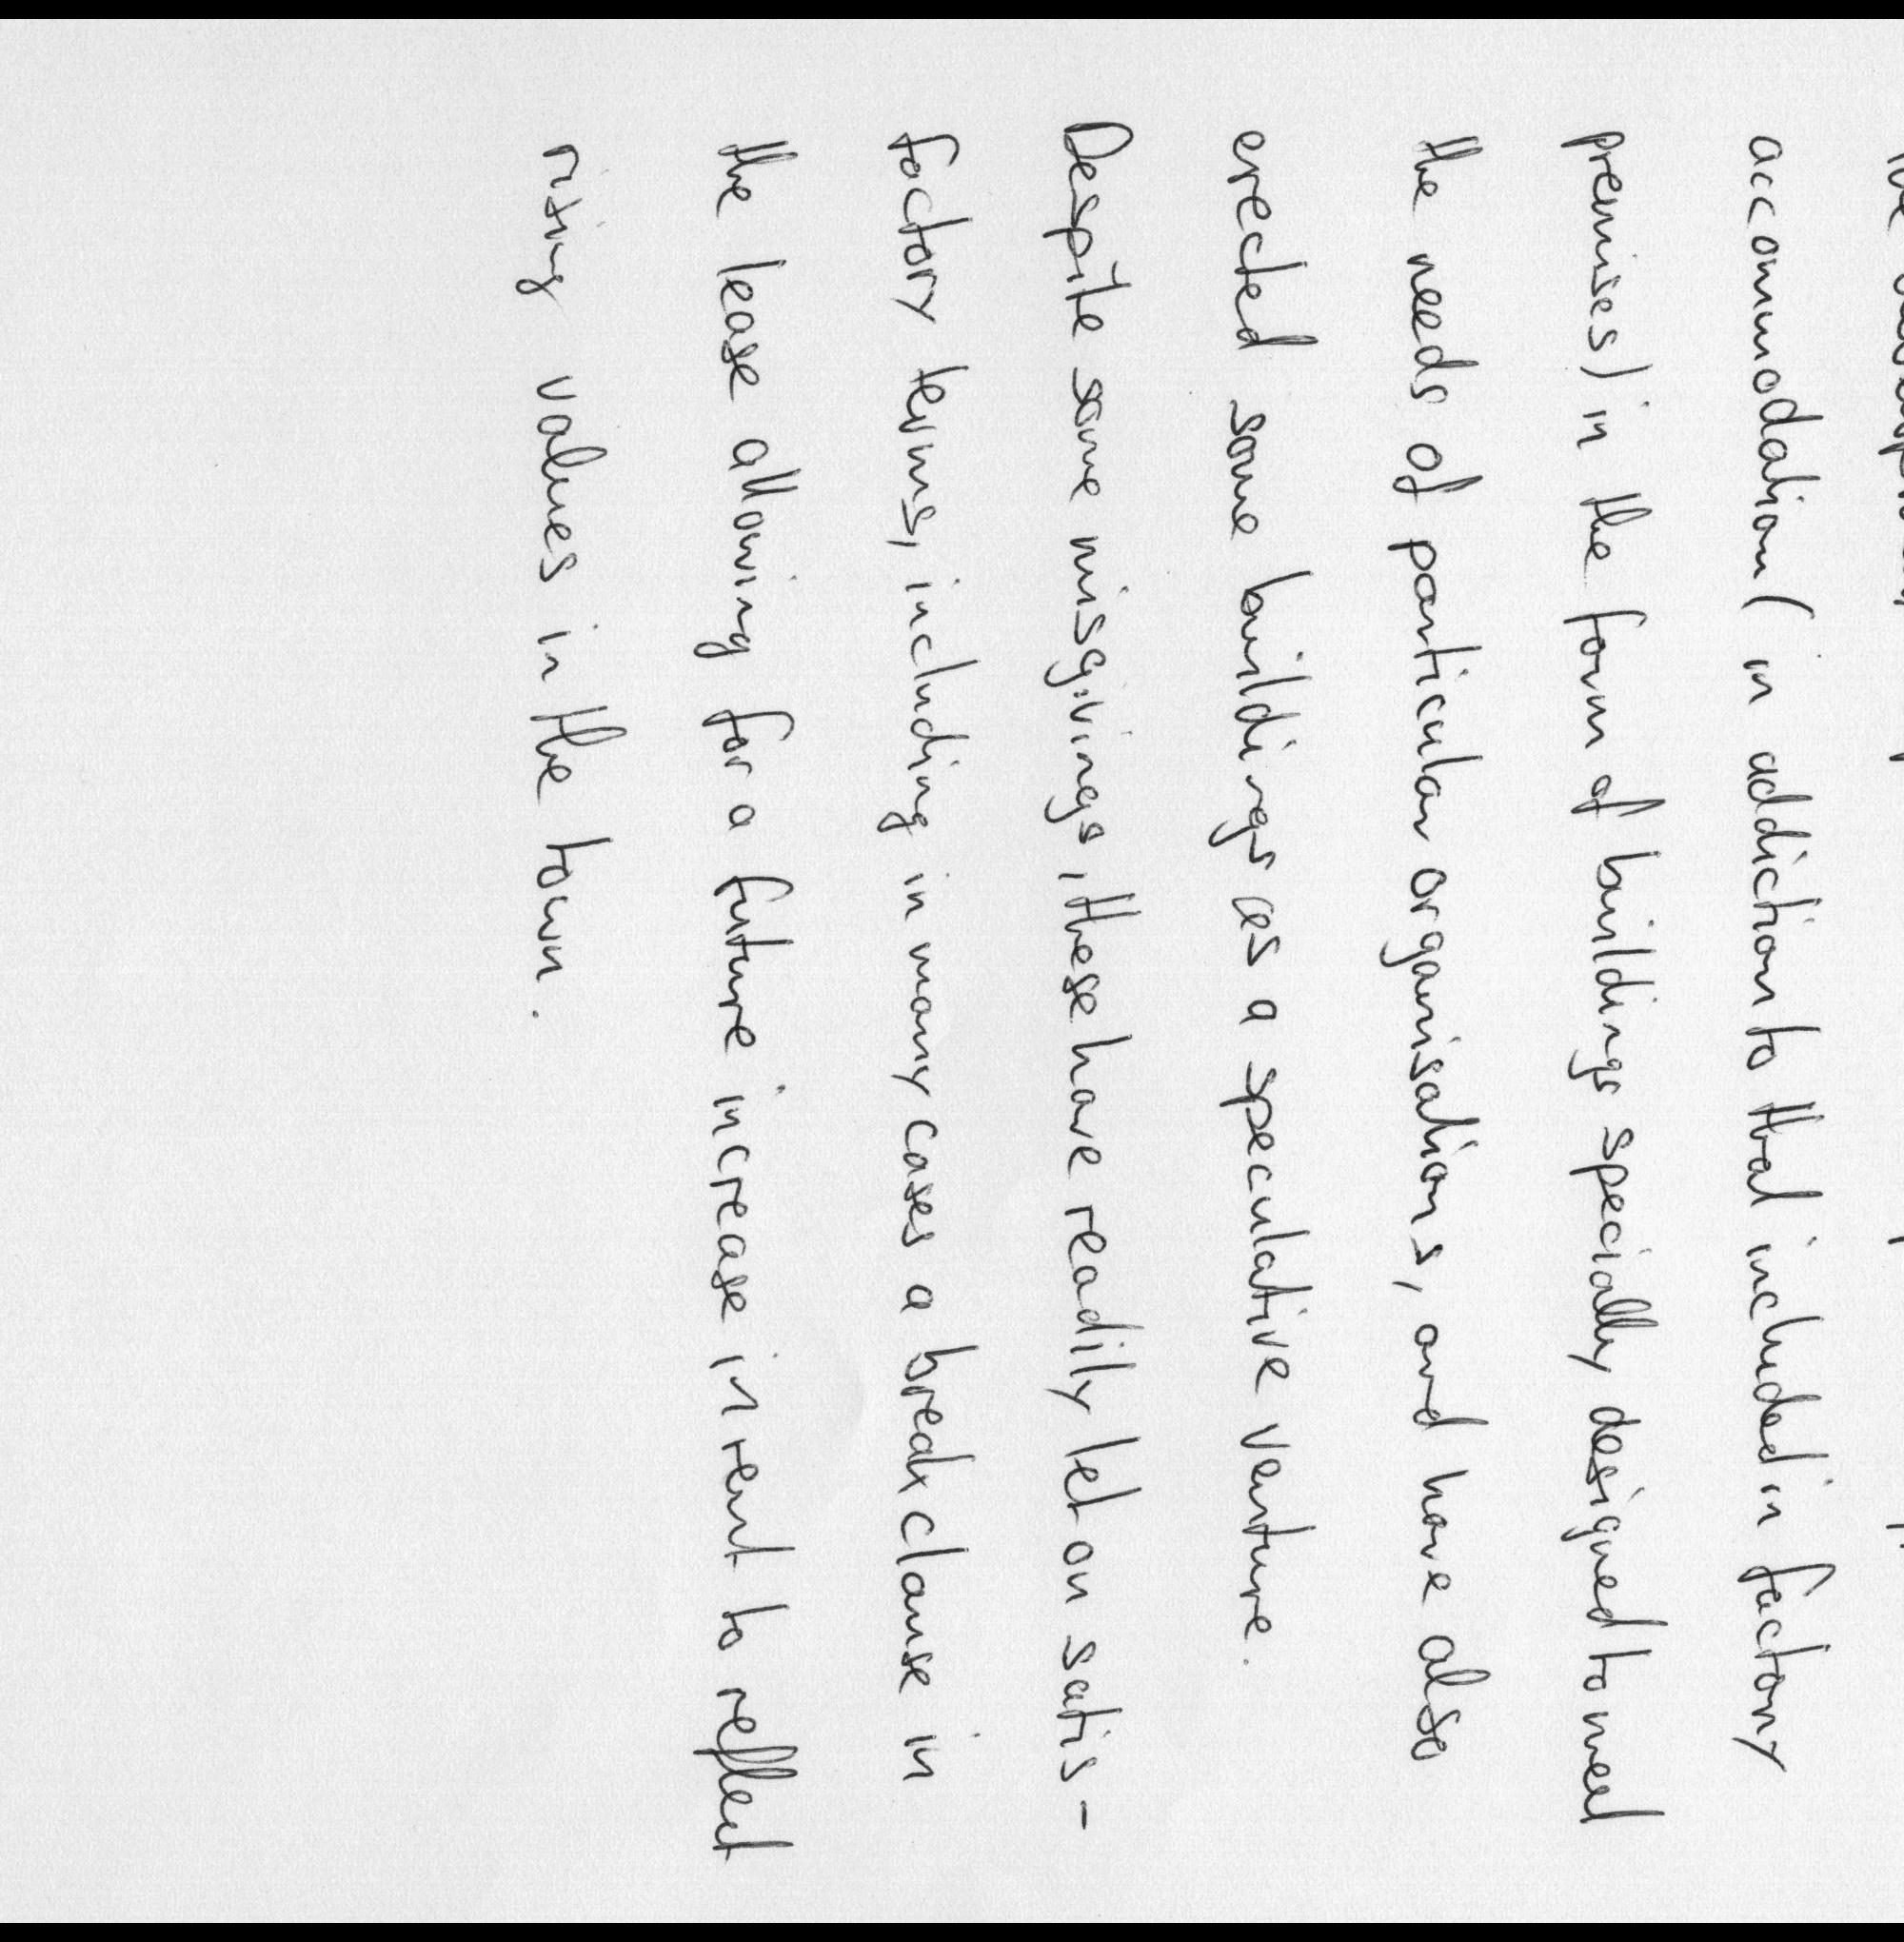 accommodation ( in addiction to that included in factory
premises) in the form of buildings specially designed to meet
the needs of particular organisations, and have also
erected some buildings as a speculative venture.
Despite some misgivings, these have readily let on satis-
factory terms, including in many cases a break clause in
the lease allowing for a future increase in rent to reflect
rising values in the town.